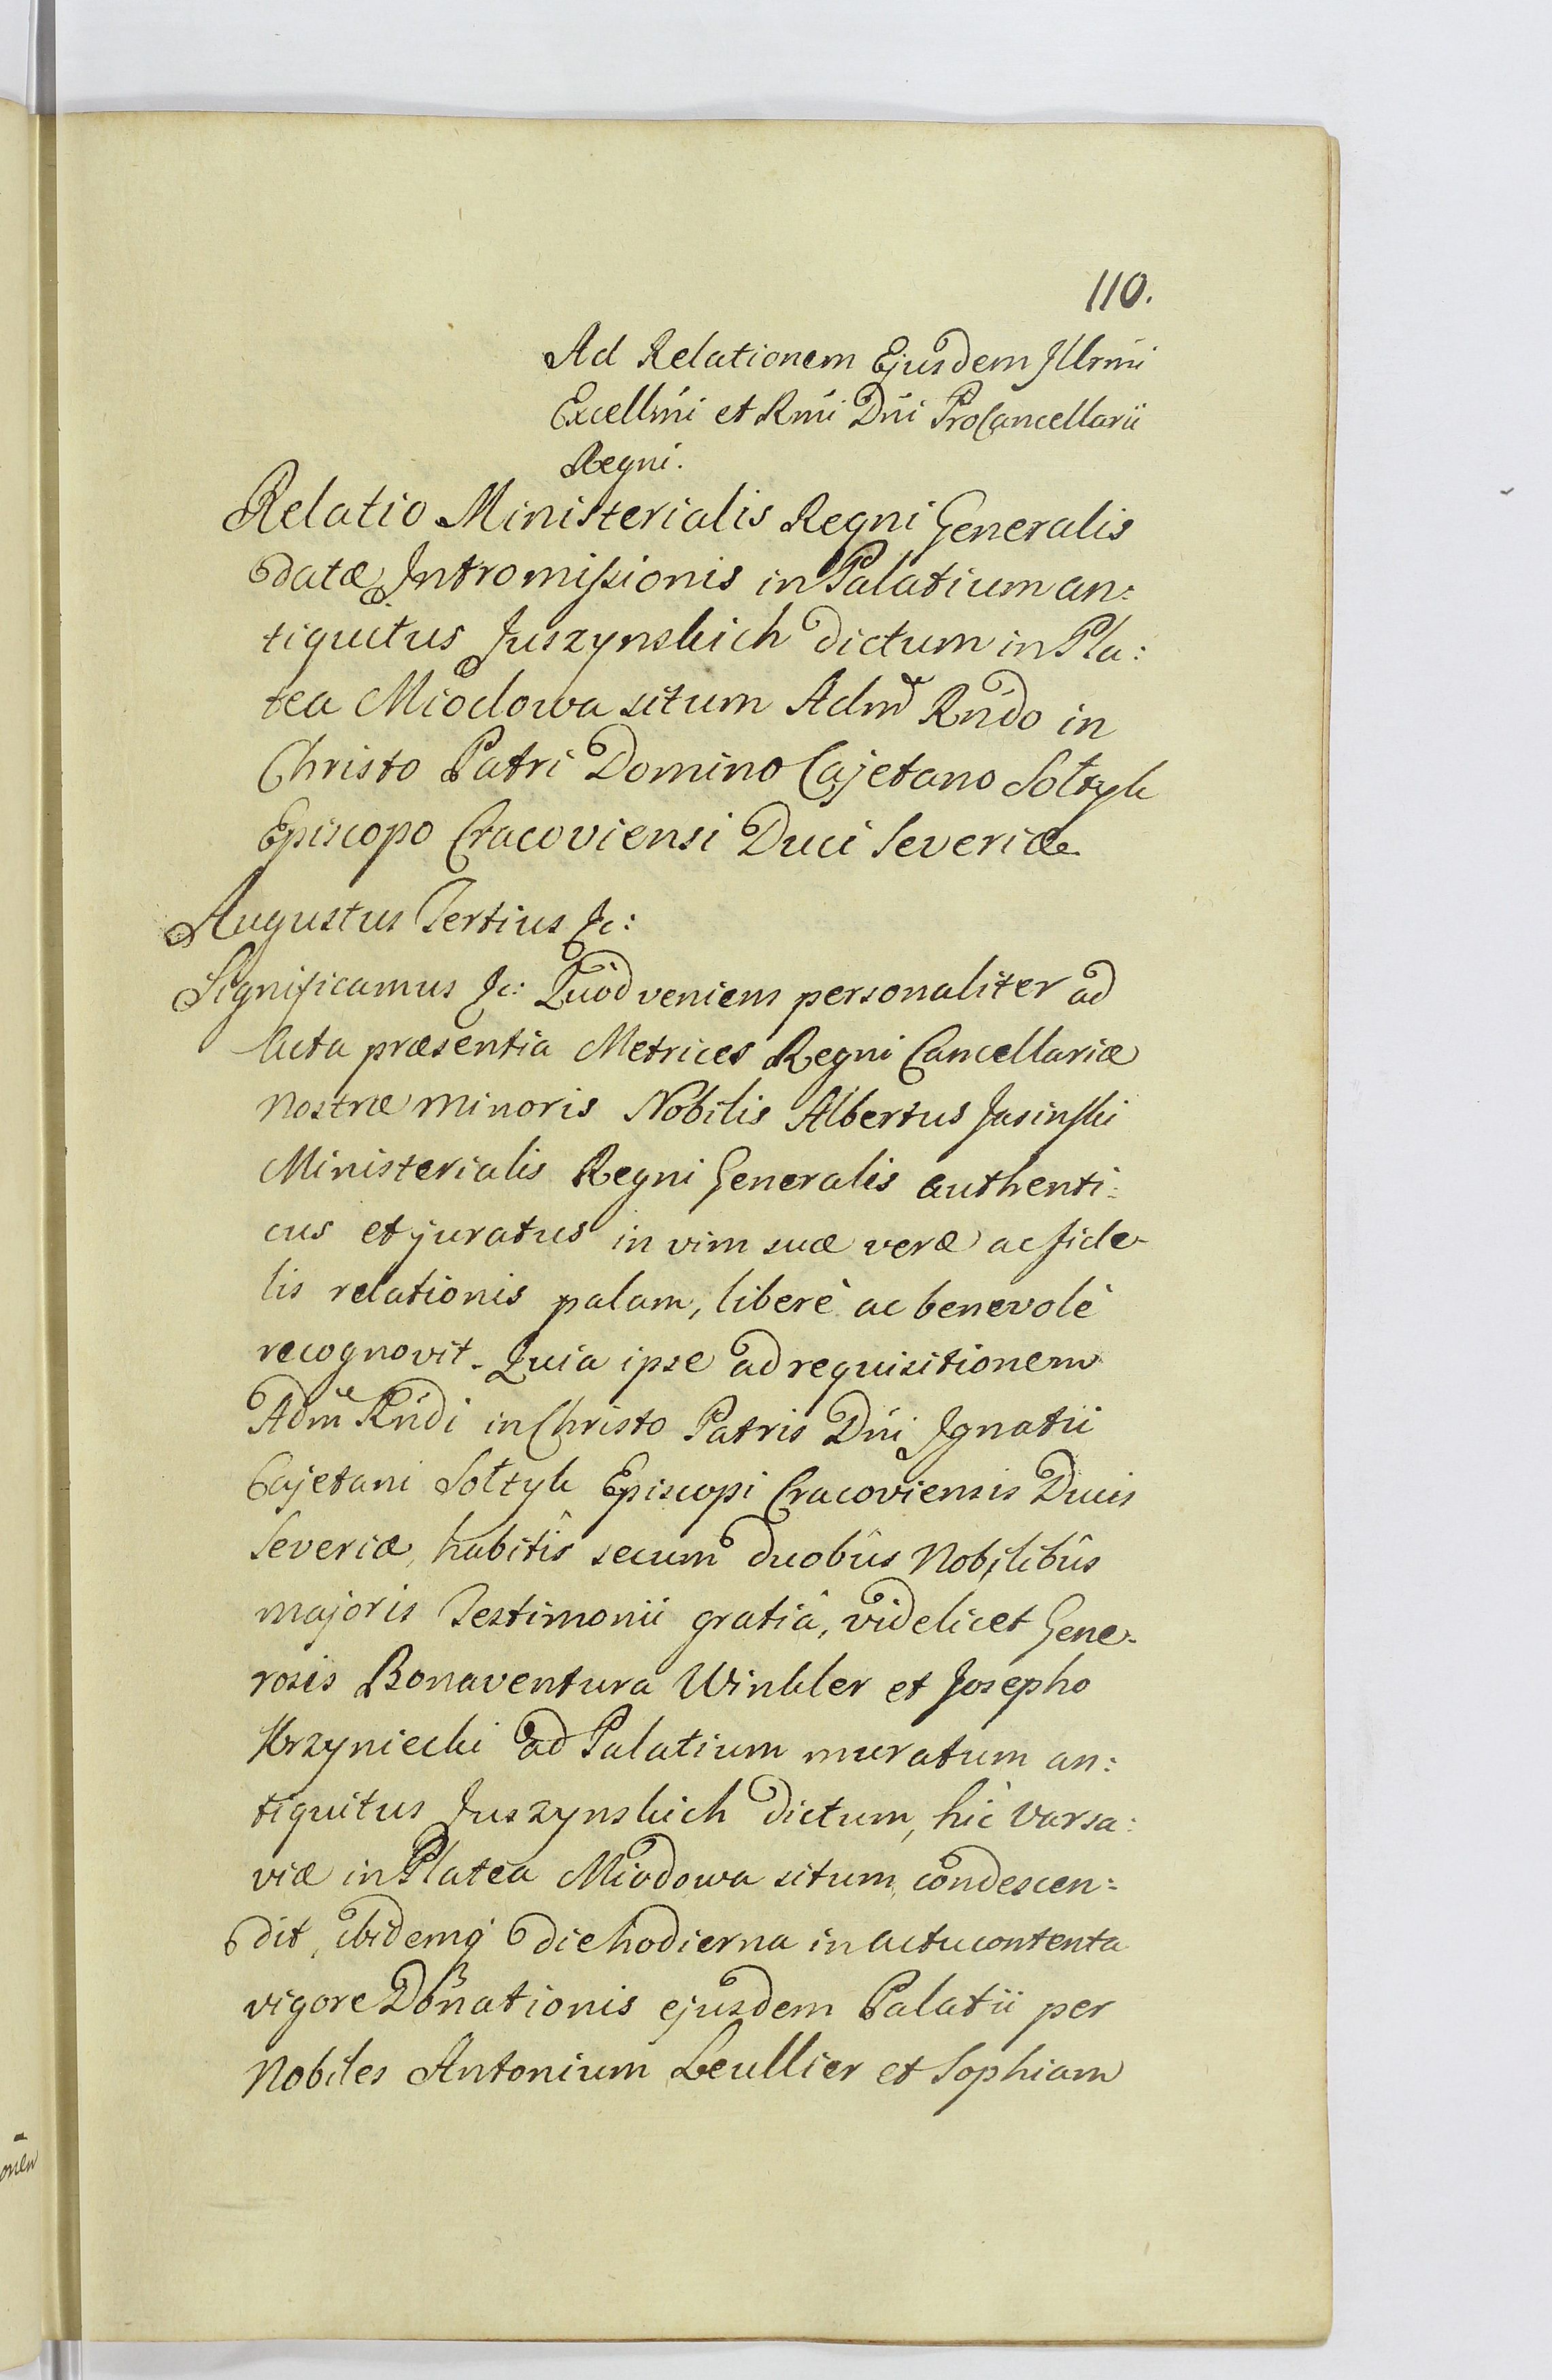 110.
Ad Relationem Ejusdem Illrmi
Excellmi et Rmi Dni ProCancellarii
Regni.
Relatio Ministerialis Regni Generalis
datæ Intromissionis in Palatium an:
tiquitus Juszynskich dictum in Pla:
tea Miodowa situm Admĕ Rndo in
Christo Patri Domino Cajetano Sołtyk
Episcopo Cracoviensi Duci Severiæ
Augustus Tertius &c:
Significamus &c: Quod veniens personaliter ad
Acta præsentia Metrices Regni Cancellariæ
nostræ minoris Nobilis Albertus Jasinski
Ministerialis Regni Generalis authenti:
cus et juratus in vim suæ veræ ac fide-
lis relationis palam, liberè ac benevolè
recognovit. Quia ipse ad requisitionem
Adme Rndi in Christo Patris Dni Ignatii
Cajetani Sołtyk Episcopi Cracoviensis Ducis
Severiæ, habitîs secum duobûs Nobilibûs
majoris Testimonii gratiâ, videlicet Gene-
rosis Bonaventura Winkler et Josepho
Krzyniecki ad Palatium muratum an:
tiquitus Juszynskich dictum, hîc Varsa:
viæ in Platea Miodowa situm, condescen:
dit, ibidemq́ die hodierna in actu contenta
vigore Donationis ejusdem Palatii per
Nobiles Antonium Leullier et Sophiam